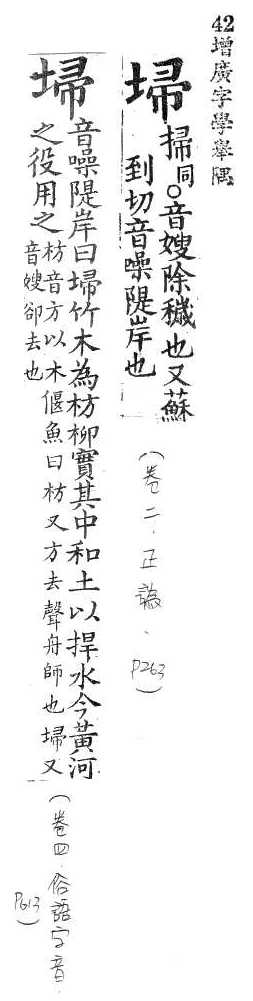 42增廣字學舉隅
埽 掃同○音嫂除穢也又蘇
到切音噪隄岸也
(卷二.正譌、P263)
埽 音噪隄岸曰埽竹木為枋柳實其中和土以捍水今黃河
之役用之枋音方以木偃魚曰枋又方去聲舟師也埽又
音嫂卻去也
(卷四.俗語字音.P613)